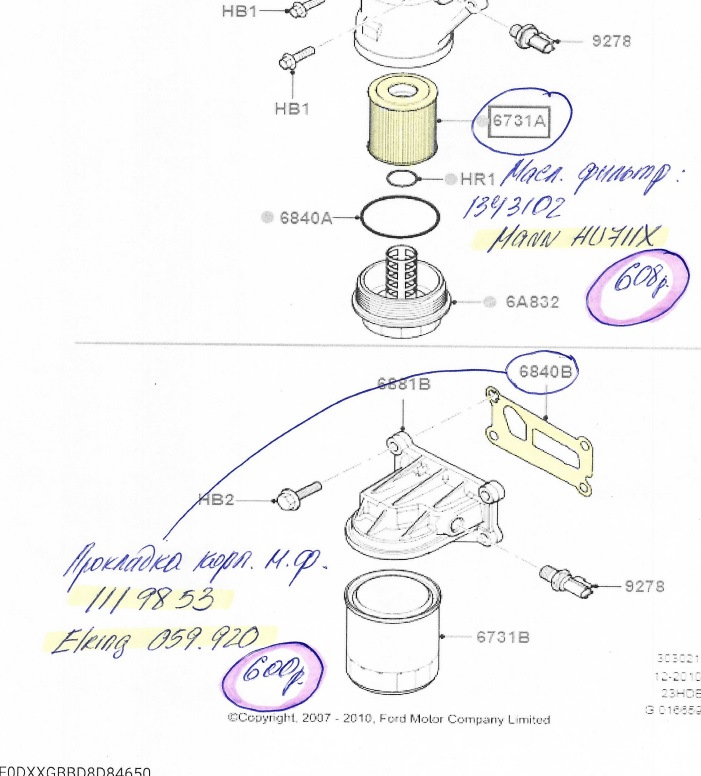 HB1
9278
HB1
6731A
HR1 Масл. фильтр:
1343102
6840A
Mann HU711X
608р.
6A832
6840B
6881B
HB2
Прокладка корп. м.ф.
1119853
9278
Elring 059.920
6731B
600р.
303021
12-2010
23HDB
G 016659
©Copyright, 2007 - 2010, Ford Motor Company Limited